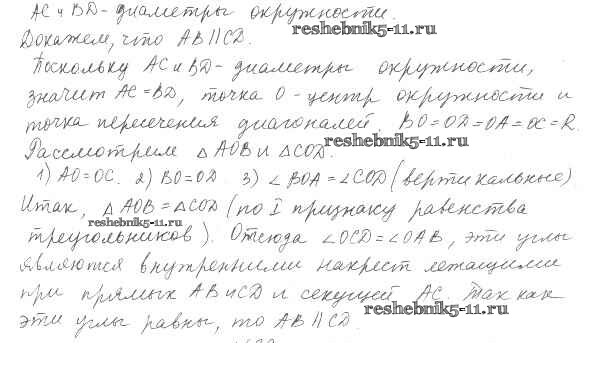 AC и BD - диаметры окружности.
Докажем, что AB || CD.
reshebnik5-11.ru
Поскольку AC и BD - диаметры окружности,
значит AC = BD, точка O - центр окружности и
точка пересечения диагоналей. BO = OD = OA = OC = R.
reshebnik5-11.ru
Рассмотрим △ AOB и △ COD.
1) AO = OC. 2) BO = OD 3) ∠ BOA = ∠ COD (вертикальные)
Итак, △ AOB = △ COD (по I признаку равенства
reshebnik5-11.ru
треугольников). Отсюда ∠ OCD = ∠ OAB, эти углы
являются внутренними накрест лежащими
при прямых AB и CD и секущей AC. Так как
reshebnik5-11.ru
эти углы равны, то AB || CD.